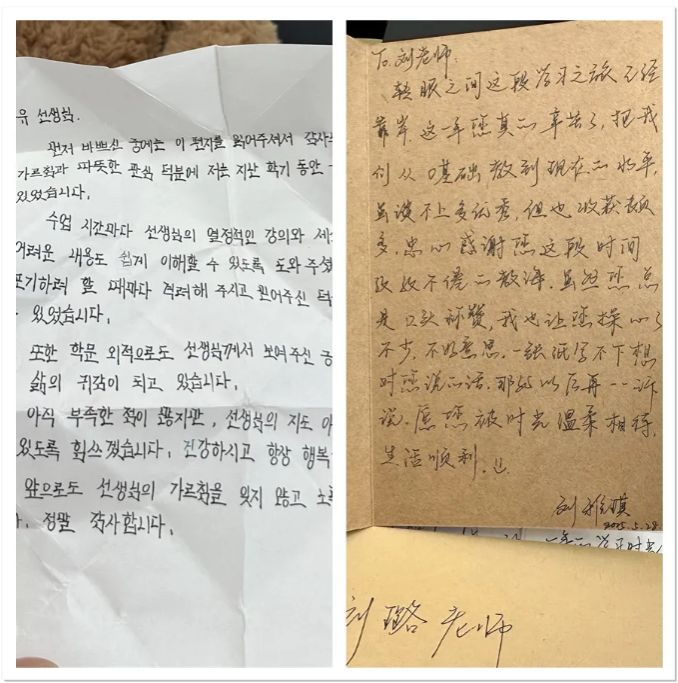 유 선생님.
먼저 바쁘신 중에도 이 편지를 읽어주셔서 감사
가르침과 따뜻한 관심 덕분에 저는 지난 학기 동안
있었습니다.
수업 시간마다 선생님의 열정적인 강의와 세
어려운 내용도 쉽게 이해할 수 있도록 도와주셨
포기하려 할 때마다 격려해 주시고 믿어주신 덕
있었습니다.
또한 학문 외적으로도 선생님께서 보여주신
삶의 귀감이 되고 있습니다.
아직 부족한 점이 많지만, 선생님의 지도 아
있도록 힘쓰겠습니다. 건강하시고 항상 행복
앞으로도 선생님의 가르침을 잊지 않고 노
정말 감사합니다.
To 刘老师:
转眼之间这段学习之旅已经
靠岸.这一年您真的辛苦了,把我
们从0基础教到现在的水平,
虽谈不上多优秀,但也收获颇
多,忠心感谢您这段时间
孜孜不倦的教诲.虽然您总
是口头称赞,我也让您操心了
不少,不好意思.一张纸写不下想
对您说的话.那就以后再一一诉
说.愿您被时光温柔相待,
生活顺利.
刘雅琪
2025.5.28
刘璐老师